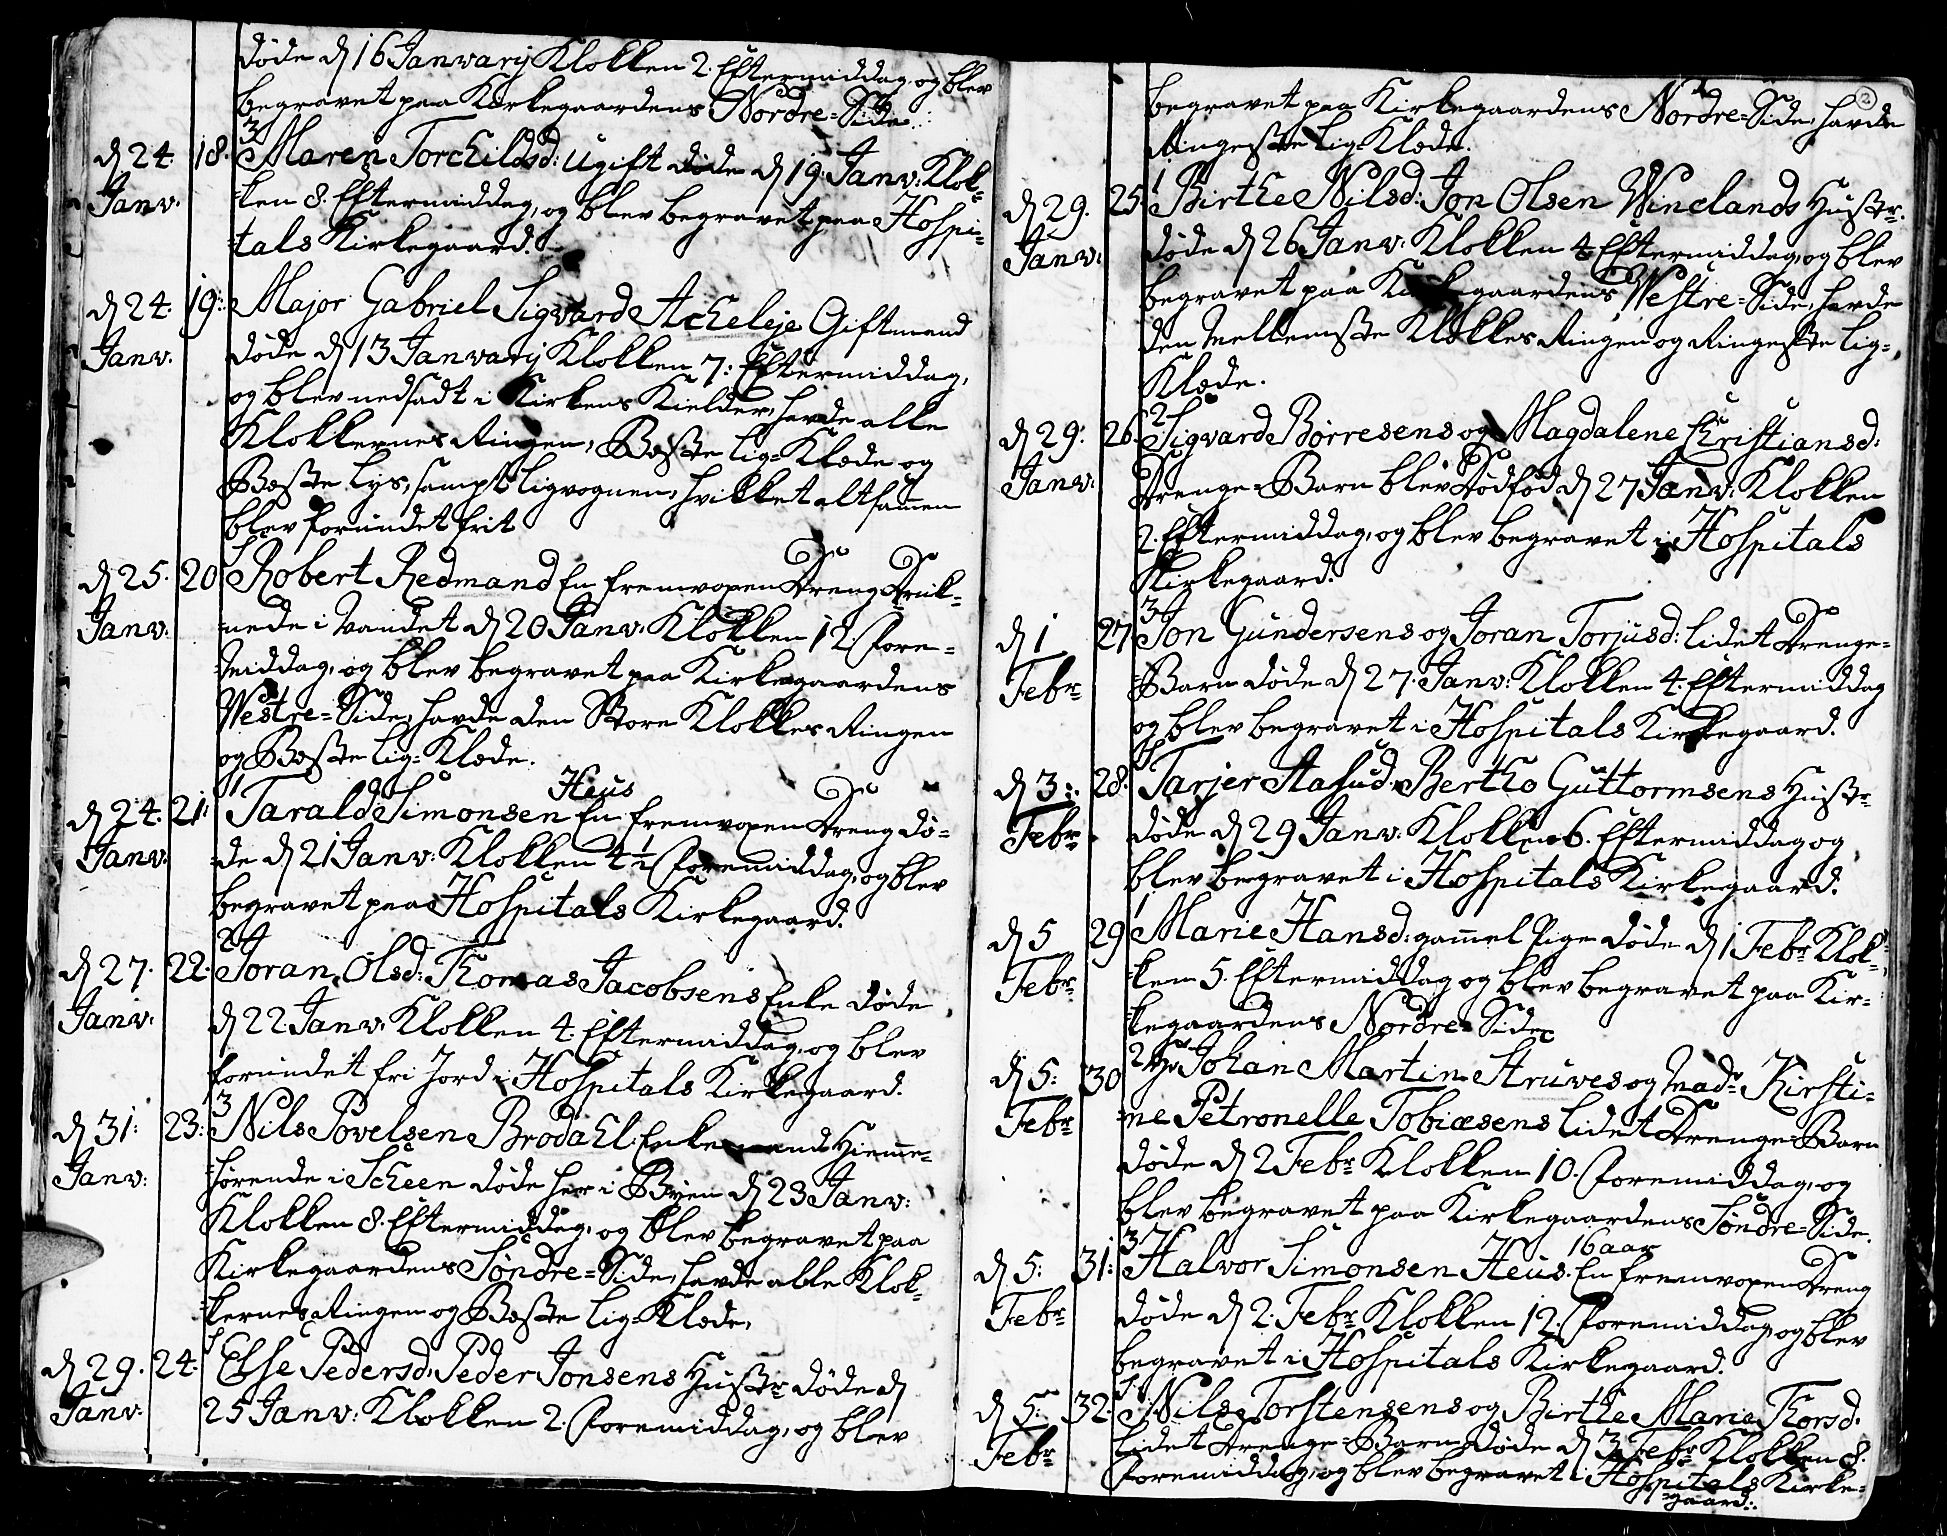 døde d 16 Janvarij Klokken 2. Eftermiddag, og blev
begravet paa Kirkegaardens Nordre=Side.
3
d 24. 18. Maren Torchildsd: Ugift døde d 19. Janv: Klok=
Janv. =ken 8. Eftermiddag, og blev begravet paa Hospi=
=tals Kirkegaard.
d 24. 19. Major Gabriel Sigvard Acheleje Giftmand
Janv. døde d 13 Janvarij Klokken 7. Eftermiddag,
og blev nedsadt i Kirkens Kielder, havde alle
Klokkernes Ringen, Beste Lig=Klæde og
Beste Lys, sampt Ligvognen, hvilket altsammen
blev forundet frit
d 25. 20 Robert Redmand En fremvoxen Dreng Druk=
Janv: =nede i Vandet d 20 Janv: Klokken 12. Fore=
middag, og blev begravet paa Kirkegaardens
Westre=Side, havde den Store Klokkes Ringen
og Beste Lig=Klæde.
1 Heus
d 24. 21: Tarald Simonsen En fremvoxen Dreng dø=
Janv: =de d 21 Janv: Klokken 4½ Foremiddag, og blev
begravet paa Hospitals Kirkegaard.
2
d 27. 22. Joran Olsd: Thomas Jacobsens Enke døde
Janv: d 22 Janv: Klokken 4. Eftermiddag, og blev
forundet fri Jord i Hospitals Kirkegaard.
3
d 31: 23: Nils Povelsen Brodahl Enkemand Hiemme=
Janv: =hørende i Scheen døde her i Byen d 23 Janv:
Klokken 8. Eftermiddag, og blev begravet paa
Kirkegaardens Søndre=Side, havde alle Klok=
=kernes Ringen og Beste Lig=Klæde,
d 29. 24. Else Pedersd: Peder Jonsens Hustr døde d
Janv: 25 Janv: Klokken 2. Foremiddag, og blev
2
begravet paa Kirkegaardens Nordre=Side, havde
Ringeste Lig=Klæde.
1
d 29. 25. Birthe Nilsd: Jon Olsen Winclands Hustr.
Janv: døde d 26 Janv: Klokken 4 Eftermiddag, og blev
begravet paa Kirkegaardens Westre=Side, havde
den Mellemste Klokkes Ringen og Ringeste Lig=
Klæde.
2
d 29: 26. Sigvard Børresens og Magdalene Christiansd:
Janv: Drenge=Barn blev Dødfød d 27 Janv: Klokken
2. Eftermiddag, og blev begravet i Hospitals
Kirkegaard.
3
d 1 27 Jon Gundersens og Joran Torjusd: lidet Drenge=
Febr =Barn døde d 27. Janv: Klokken 4. Eftermiddag
og blev begravet i Hospitals Kirkegaard.
d 3: 28. Tarjer Aasud: Bertho Guttormsens Hustr
Febr døde d 29 Janv: Klokken 6. Eftermiddag og
blev begravet i Hospitals Kirkegaard.
1
d 5 29 Marie Hansd: gammel Pige døde d 1 Febr Klok=
Febr =ken 5. Eftermiddag og blev begravet paa Kir=
=kegaardens Nordre=Side
2
d 5: 30 Hr Johan Martin Struves og Mad: Kirsti=
Febr =ne Petronelle Tobiæsens lidet Drenge=Barn
døde d 2 Febr Klokken 10. Foremiddag, og
blev begravet paa Kirkegaardens Søndre=Side.
3 16 aar
d 5: 31: Halvor Simonsen Heus. En fremvoxen Dreng
Febr døde d 2. Febr Klokken 12. Foremiddag, og blev
begravet i Hospitals Kirkegaard.
d 5: 32. Nils Torstensens og Birthe Marie Thorsd.
Febr lidet Drenge=Barn døde d 3 Febr Klokken 8.
Foremiddag, og blev begravet i Hospitals Kirke=
=gaard: